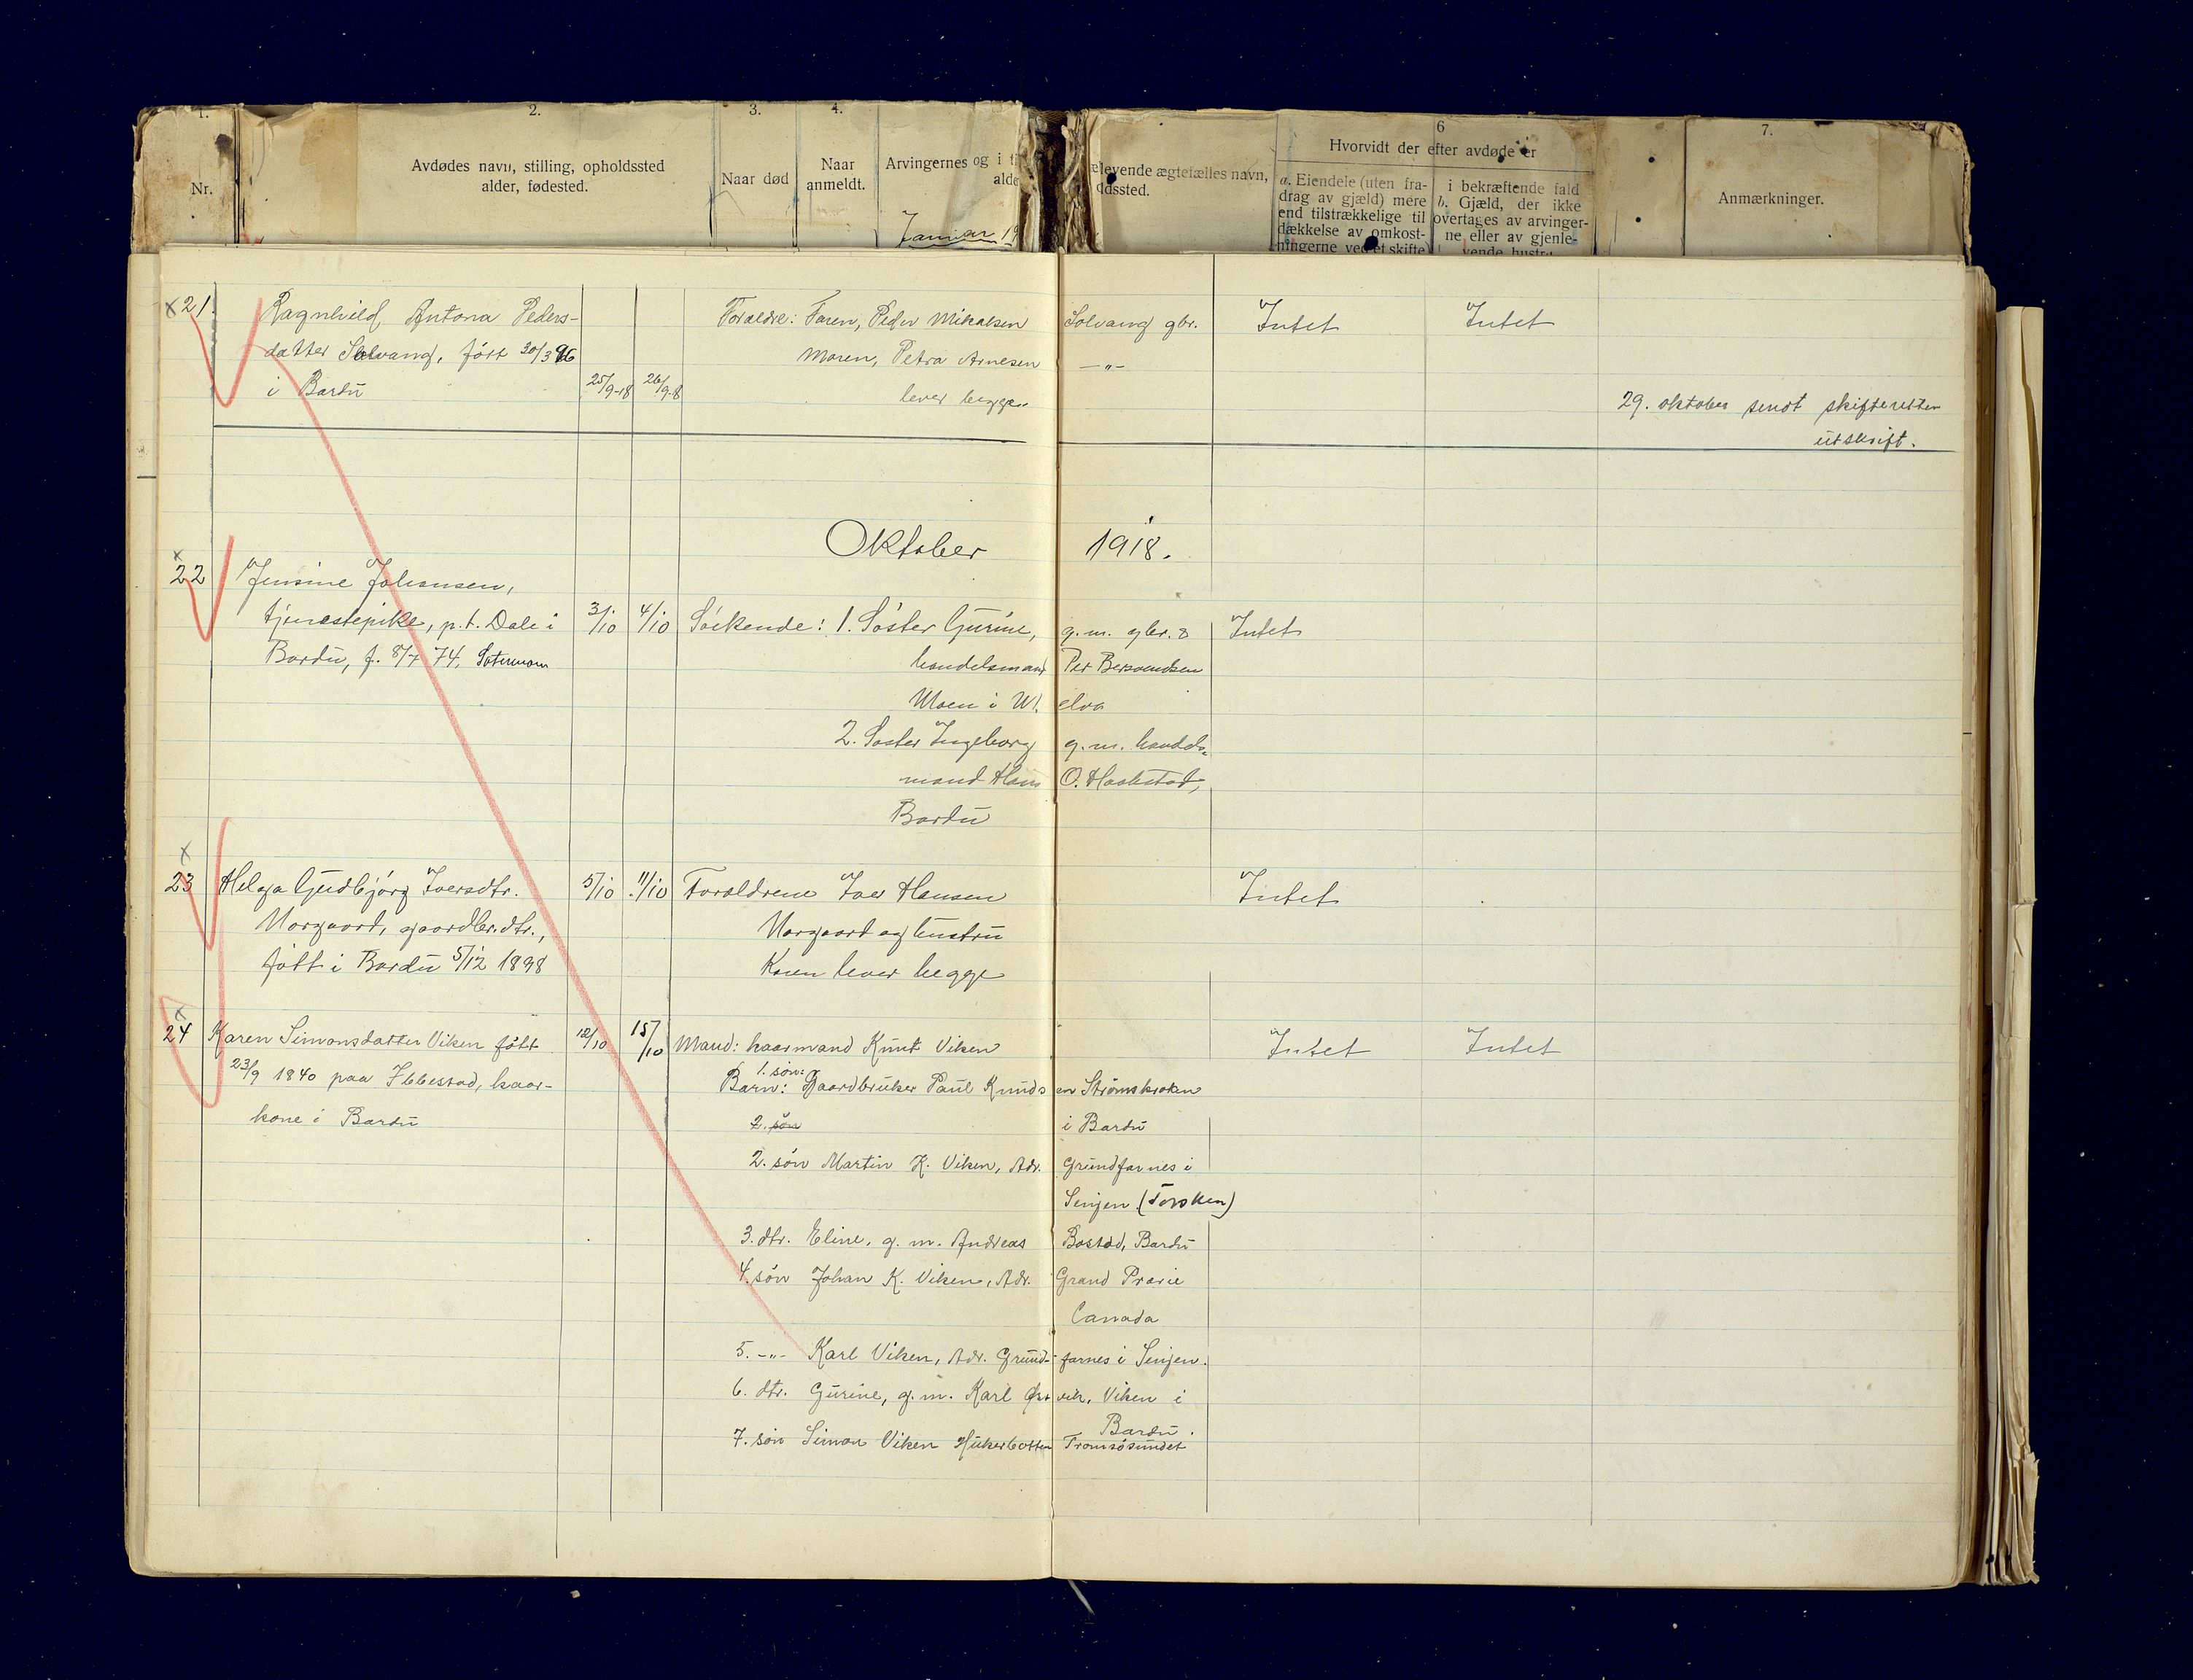 1. 2. 3. 4. 6 7.
Nr.
Avdødes navn, stilling, opholdssted
alder, fødested.
Naar død
Naar
anmeldt.
Arvingernes og i
alde
levende ægtefælles navn,
dssted.
Hvorvidt der efter avdøde er
a. Eiendele (uten fra-
drag av gjæld) mere
end tilstrækkelige til
dækkelse av omkost-
ningerne ved et skifte
i bekræftende fald
b. Gjæld, der ikke
overtages av arvinger-
ne eller av gjenle-
vende hustru
Anmærkninger.
Januar 19
x21. Ragnhild Antona Peders- Forældre: Faren, Peder Mikalsen Solvang gbr. Intet Intet
datter Solvang, født 30/3 96 Moren, Petra Arnesen -"-
i Bardu 25/9-18 26/9-8 lever begge.
29. oktober sendt skifteretten
utskrift.
Oktober 1918.
x
22 Jensine Johansen,
tjenestepike, p.t. Dale i 3/10 4/10 Søskende: 1. Søster Gurine, g.m. gbr. & Intet
Bardu, f. 8/7 74, handelsmand Per Bersvendsen
Moen i M. elva
2. Søster Ingeborg g.m. handels-
mand Hans O. Haakstad,
Bardu
x
23 Helga Gudbjørg Iversdtr. 5/10 11/10 Forældrene Iver Hansen Intet
Norgaard, gaardbr.dtr., Norgaard og hustru
født i Bardu 5/12 1898 Karen lever begge
x
24 Karen Simonsdatter Viken født 12/10 15/10 Mand: kaarmand Knut Viken Intet Intet
1. søn:
23/9 1840 paa Ibbestad, kaar- Barn: Gaardbruker Paul Knudsen Strømskroken
kone i Bardu 2. søn i Bardu
2. søn Martin K. Viken, Adr. Grundfarnes i
Senjen (Torsken)
3. dtr. Eline, g. m. Andreas Bostad, Bardu
4. søn Johan K. Viken, Adr. Grand Prarie
Canada
5. -"- Karl Viken, Adr. Grund- farnes i Senjen.
6. dtr. Gurine, g.m. Karl Ørvik, Viken i
Bardu.
7. søn Simon Viken Tromsøsundet